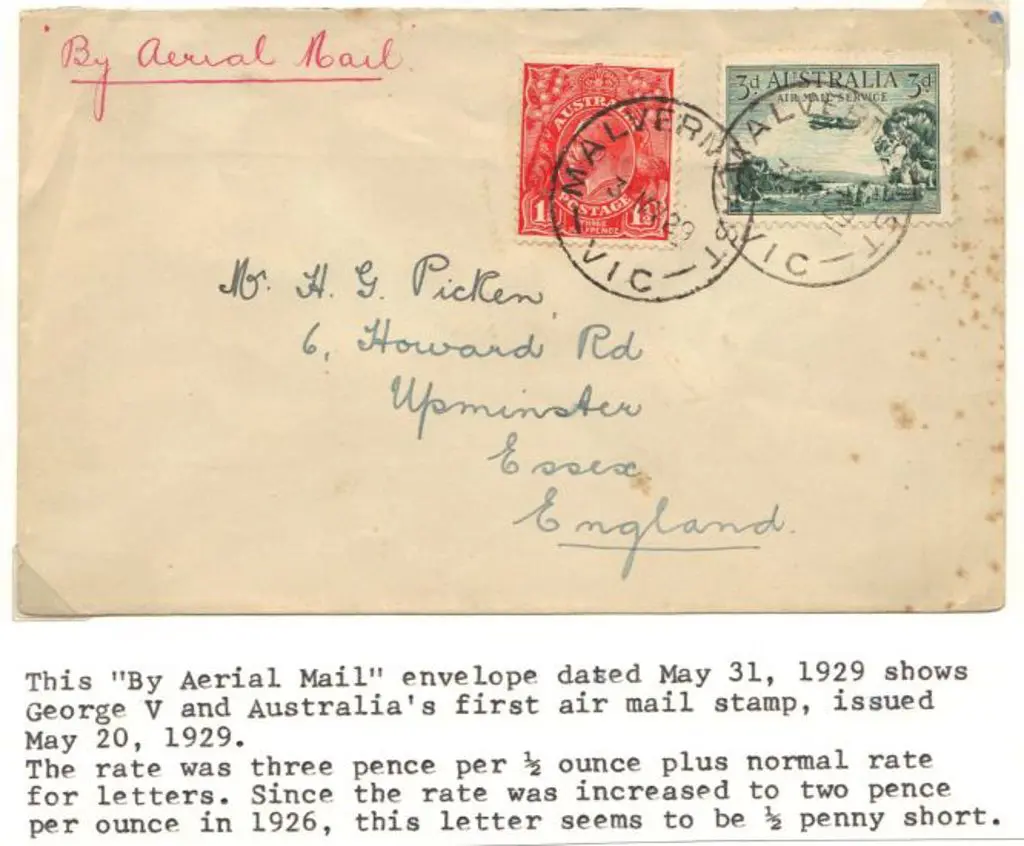 By Aerial Mail
AUSTRALIA
1½ POSTAGE 1½
3d AUSTRALIA 3d
AIR MAIL SERVICE
MALVERN
VIC
Mr. H. G. Picken,
6, Howard Rd
Upminster
Essex
England.
This "By Aerial Mail" envelope dated May 31, 1929 shows
George V and Australia's first air mail stamp, issued
May 20, 1929.
The rate was three pence per ½ ounce plus normal rate
for letters. Since the rate was increased to two pence
per ounce in 1926, this letter seems to be ½ penny short.